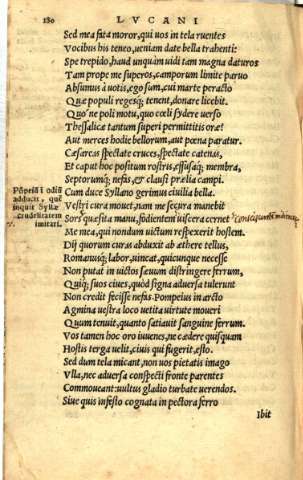 180 LVCANI
Sed mea fata moror, qui uos in tela ruentes
Vocibus his teneo, ueniam date bella trahenti:
Spe trepido, haud unquàm uidi tam magna daturos
Tam prope me superos, camporum limite paruo
Absumus à uotis, ego sum, cui marte peracto
Quæ populi regesq; tenent, donare licebit.
Quo'ne poli motu, quo cœli sydere uerso
Thessalicæ tantum superi permittitis oræ?
Aut merces hodie bellorum, aut pœna paratur.
Cæsareas spectate cruces, spectate catenas,
Et caput hoc positum rostris, effusaq; membra,
Septorumq; nefas, & clausi prælia campi.
Cum duce Syllano gerimus ciuilia bella.
Vestri cura mouet, nam me secura manebit
Sors quæsita manu, fodientem uiscera cernet
Me mea, qui nondum uictum respexerit hostem.
Dij quorum curas abduxit ab æthere tellus,
Romanusq; labor, uincat, quicunque necesse
Non putat in uictos sæuum distringere ferrum.
Quiq; suos ciues, quòd signa aduersa tulerunt
Non credit fecisse nefas. Pompeius in arcto
Agmina uestra loco uetita uirtute moueri
Quum tenuit, quanto satiauit sanguine ferrum.
Vos tamen hoc oro iuuenes, ne cædere quisquam
Hostis terga uelit, ciuis qui fugerit, esto.
Sed dum tela micant, non uos pietatis imago
Vlla, nec aduersa conspecti fronte parentes
Commoueant: uultus gladio turbate uerendos.
Siue quis infesto cognata in pectora ferro
Ibit
Põpeiũ ĩ odiũ
adducit, quẽ
inquit Syllæ
crudelitatem
imitari.